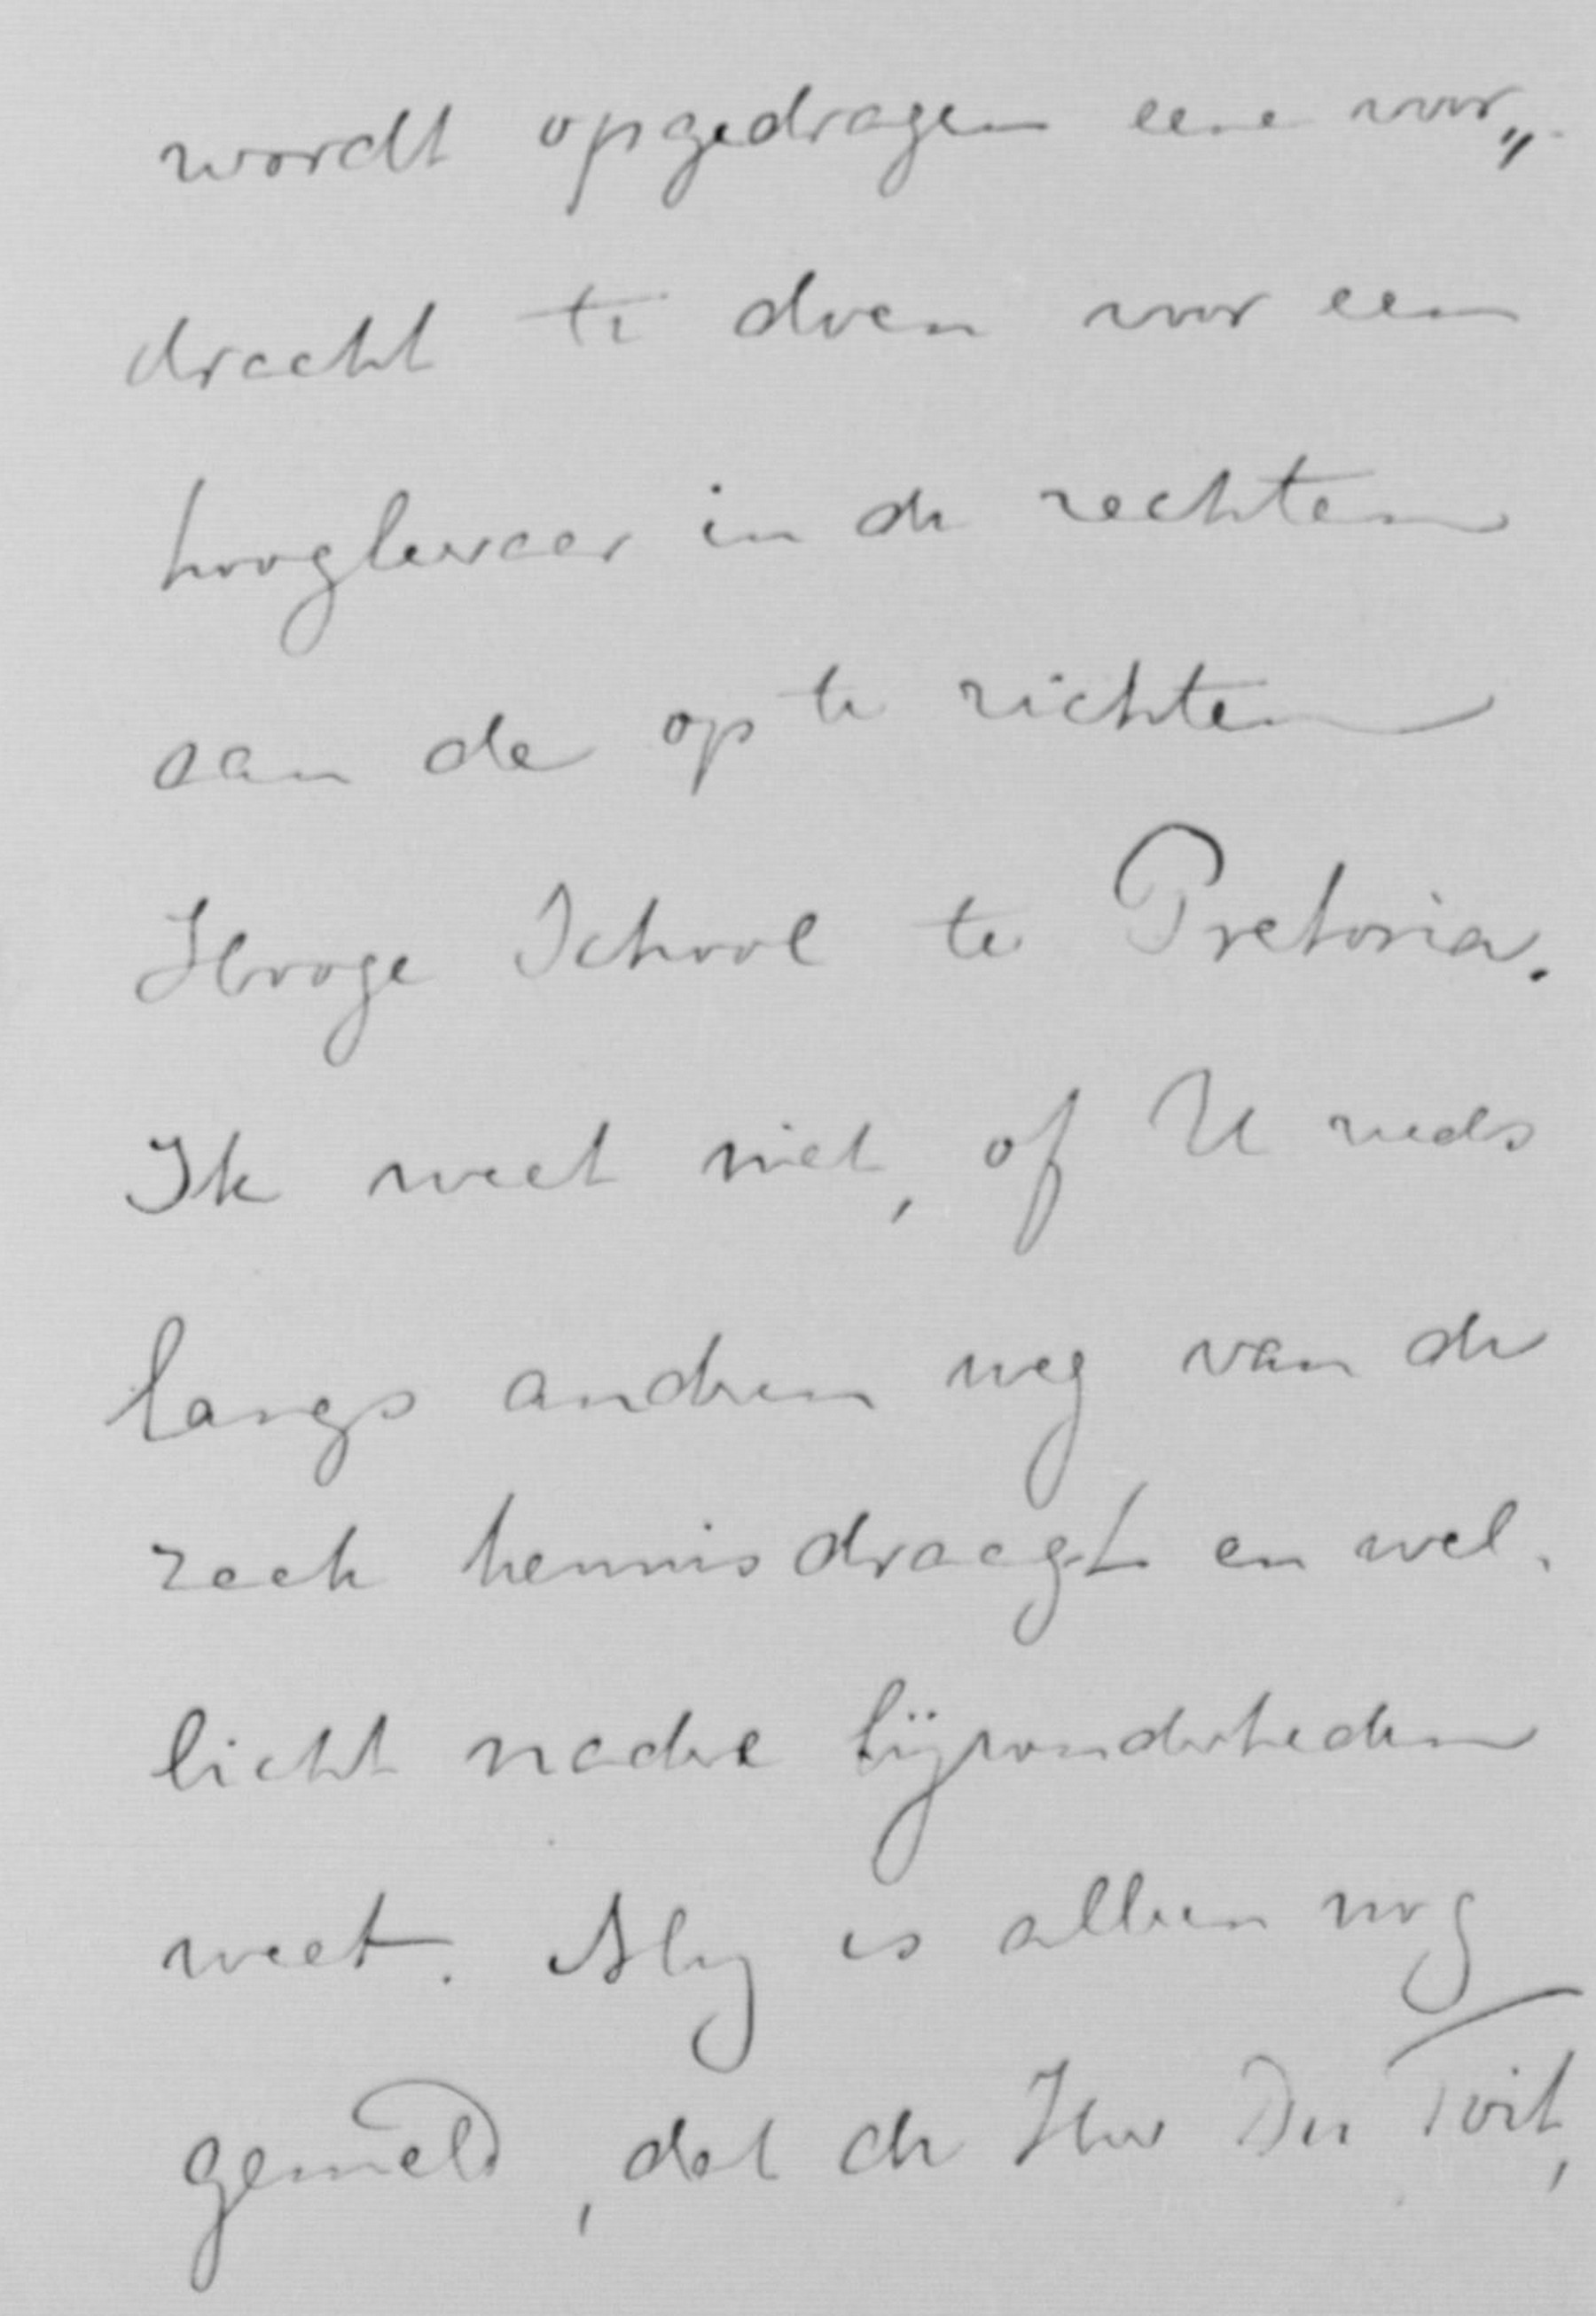 wordt opgedragen eene voor„
dracht te doen voor een
hoogleeraar in de rechten
aan de op te richten
Hooge School te Pretoria.
Ik weet niet, of U reeds
langs andren weg van de
zaak kennis draagt en wel„
licht nadre bijzonderheden
weet. Mij is alleen nog
gemeld, dat de Heer Du Toit,